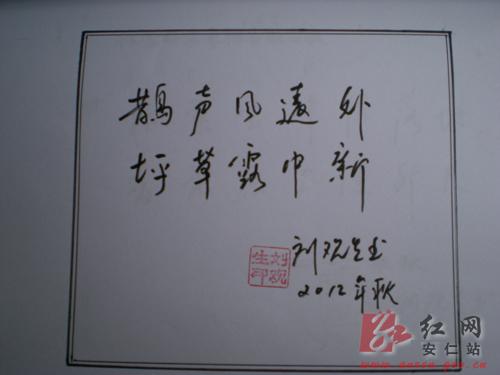 鹊声风遠外
坪草露中新
刘观生书
2012年秋
刘观生印
红网
安仁站